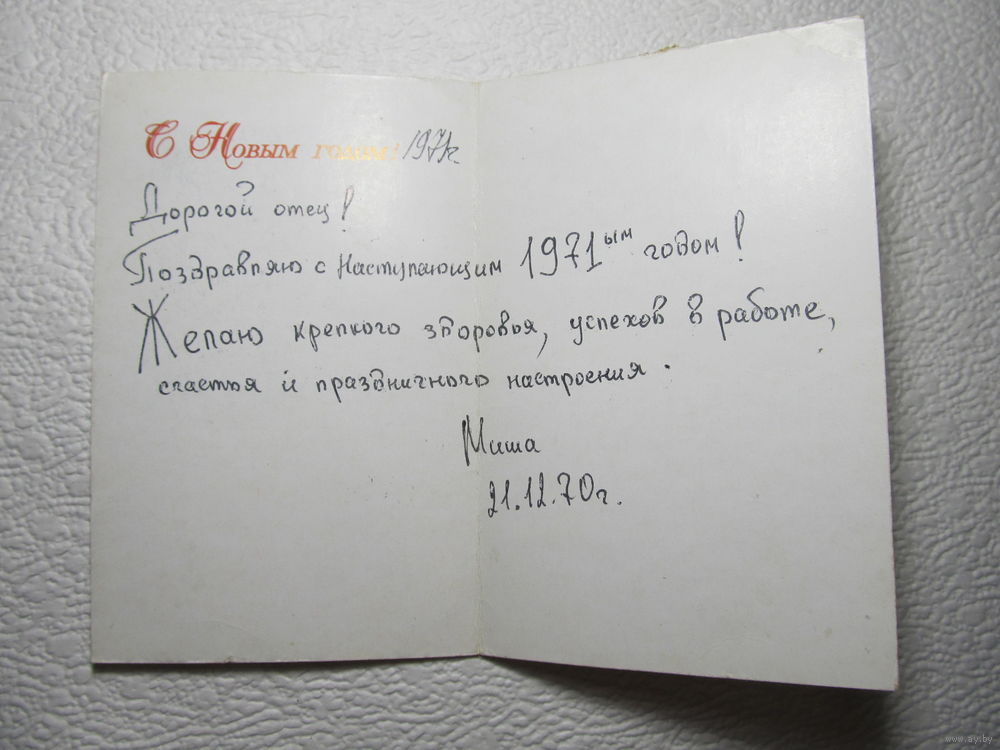 С Новым годом! 1971г.
Дорогой отец!
Поздравляю с Наступающим 1971ым годом!
Желаю крепкого здоровья, успехов в работе,
счастья и праздничного настроения.
Миша
21.12.70г.
www.ay.by